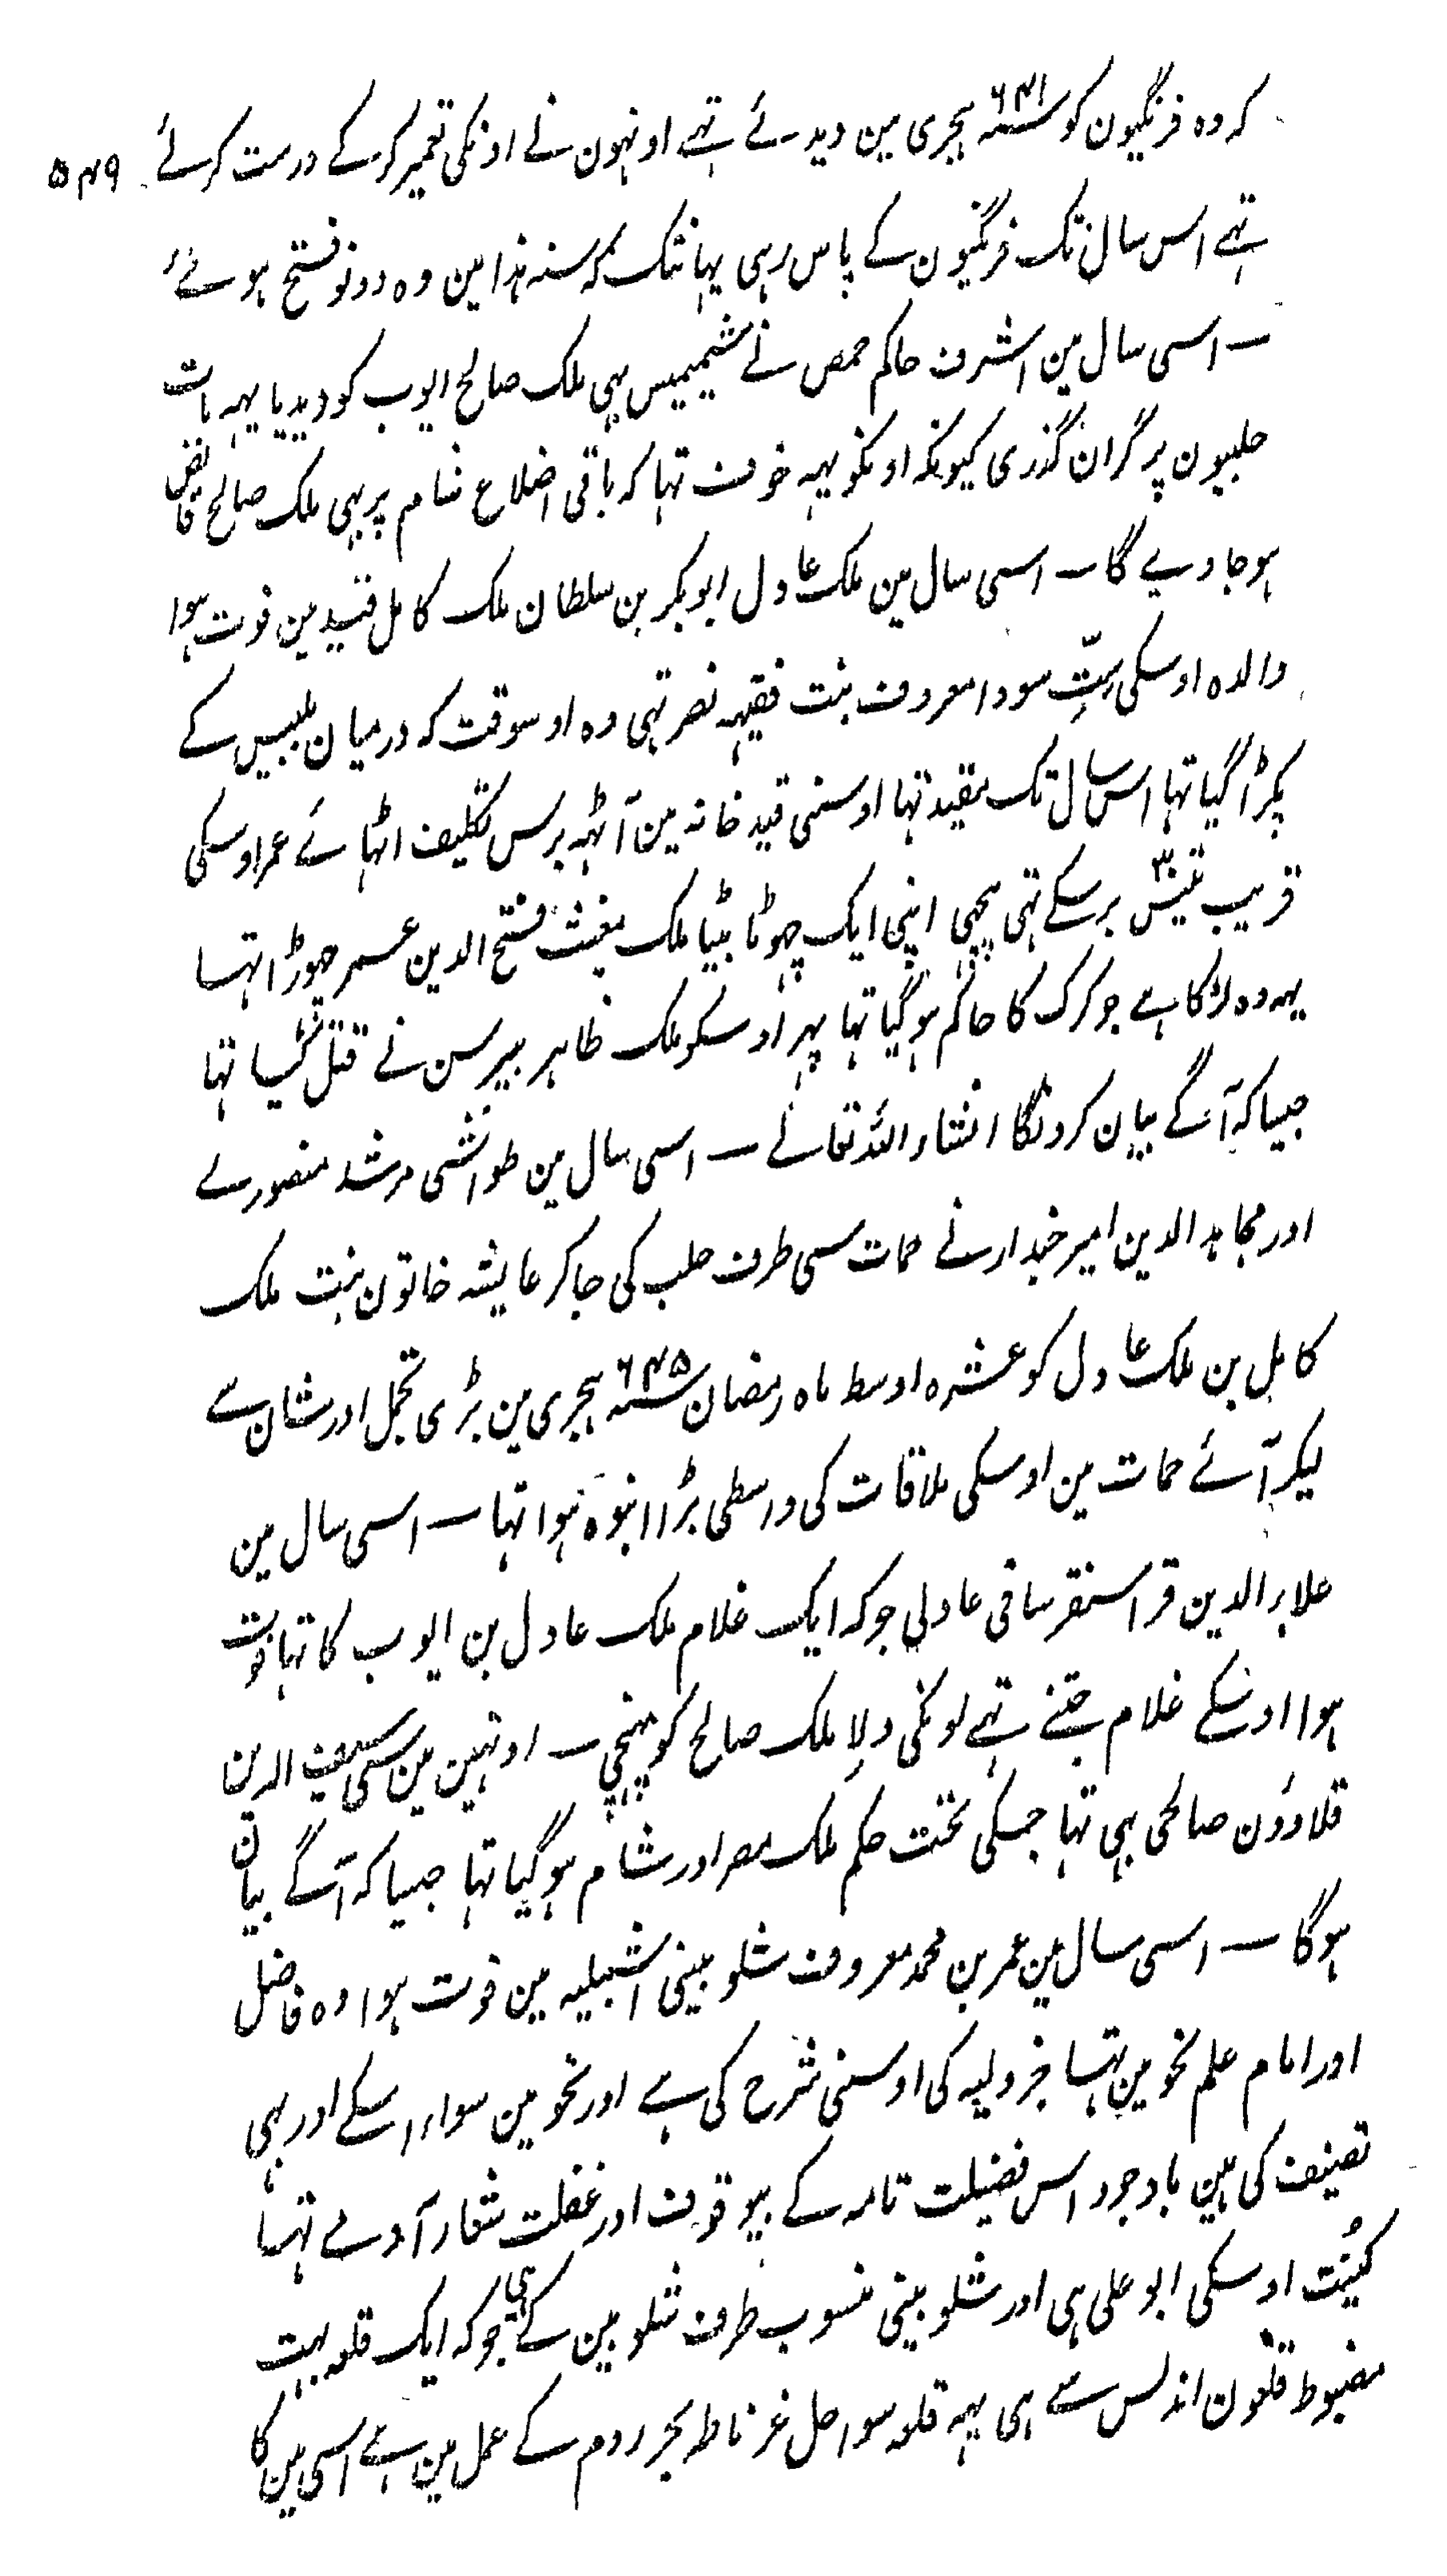 کہ وہ فرنگیون کو سنہ ۶۴۱ ہجری مین دیدئے تہے اونہون نے اونکی تعمیر کرکے درست کرلئے ۵۴۹
تہے اس سال تک فرنگیون کے پاس رہی یہانتک کہ سنہ ہذا مین وہ دونو فتح ہوئے
— اسی سال مین اشرف حاکم حمص نے شمیمیس بہی ملک صالح ایوب کو دیدیا یہہ بات
حلبیون پر گران گذری کیونکہ اونکو یہہ خوف تہا کہ باقی اضلاع شام پر بہی ملک صالح قابض
ہوجاویگا — اسی سال مین ملک عادل ابوبکر بن سلطان ملک کامل قید مین فوت ہوا
والدہ اوسکی ستِّ سودا معروف بنت فقیہہ نصر تہی وہ اوسوقت کہ درمیان بلبیس کے
پکڑا گیا تہا اس سال تک مقید تہا اوسنی قید خانہ مین آٹہہ برس تکلیف اٹہائے عمر اوسکی
قریب تیس ۳۰ برسکے تہی پیچہی اپنی ایک چہوٹا بیٹا ملک مغیث فتح الدین عمر چہوڑا تہا
یہہ وہ لڑکا ہے جو کرک کا حاکم ہوگیا تہا پہر اوسکو ملک ظاہر بیبرس نے قتل کیا تہا
جیسا کہ آگے بیان کرونگا انشاء اللہ تعالے — اسی سال مین طواشی مرشد منصورے
اور مجاہد الدین امیر خبدار نے حمات سی طرف حلب کی جاکر عایشہ خاتون بنت ملک
کامل بن ملک عادل کو عشرہ اوسط ماہ رمضان سنہ ۶۴۵ ہجری مین بڑی تجمل اور شان سے
لیکر آئے حمات مین اوسکی ملاقات کی واسطی بڑا انبوہ ہوا تہا — اسی سال مین
علاء الدین قراسنقر ساقی عادلی جو کہ ایک غلام ملک عادل بن ایوب کا تہا فوت
ہوا اوسکے غلام جتنے تہے اونکی ولاِ ملک صالح کو پہنچی — اونہین مین سی سیف الدین
قلاوؤن صالحی بہی تہا جسکی تحت حکم ملک مصر اور شام ہوگیا تہا جیسا کہ آگے بیان
ہوگا — اسی سال مین عمر بن محمد معروف شلوبینی اشبیلیہ مین فوت ہوا وہ فاضل
اور امام علم نحو مین تہا جزولیہ کی اوسنی شرح کی ہے اور نحو مین سواء اسکے اور بہی
تصنیف کی ہین باوجود اس فضیلت تامہ کے بیوقوف اور غفلت شعار آدمے تہا
کینُت اوسکی ابو علی ہی اور شلوبینی منسوب طرف شلوبین کے ہی جو کہ ایک قلعہ بہت
مضبوط قلعون اندلس سے ہی یہہ قلعہ سواحل غرناطہ بحر روم کے عمل مین ہے اسی مین کا